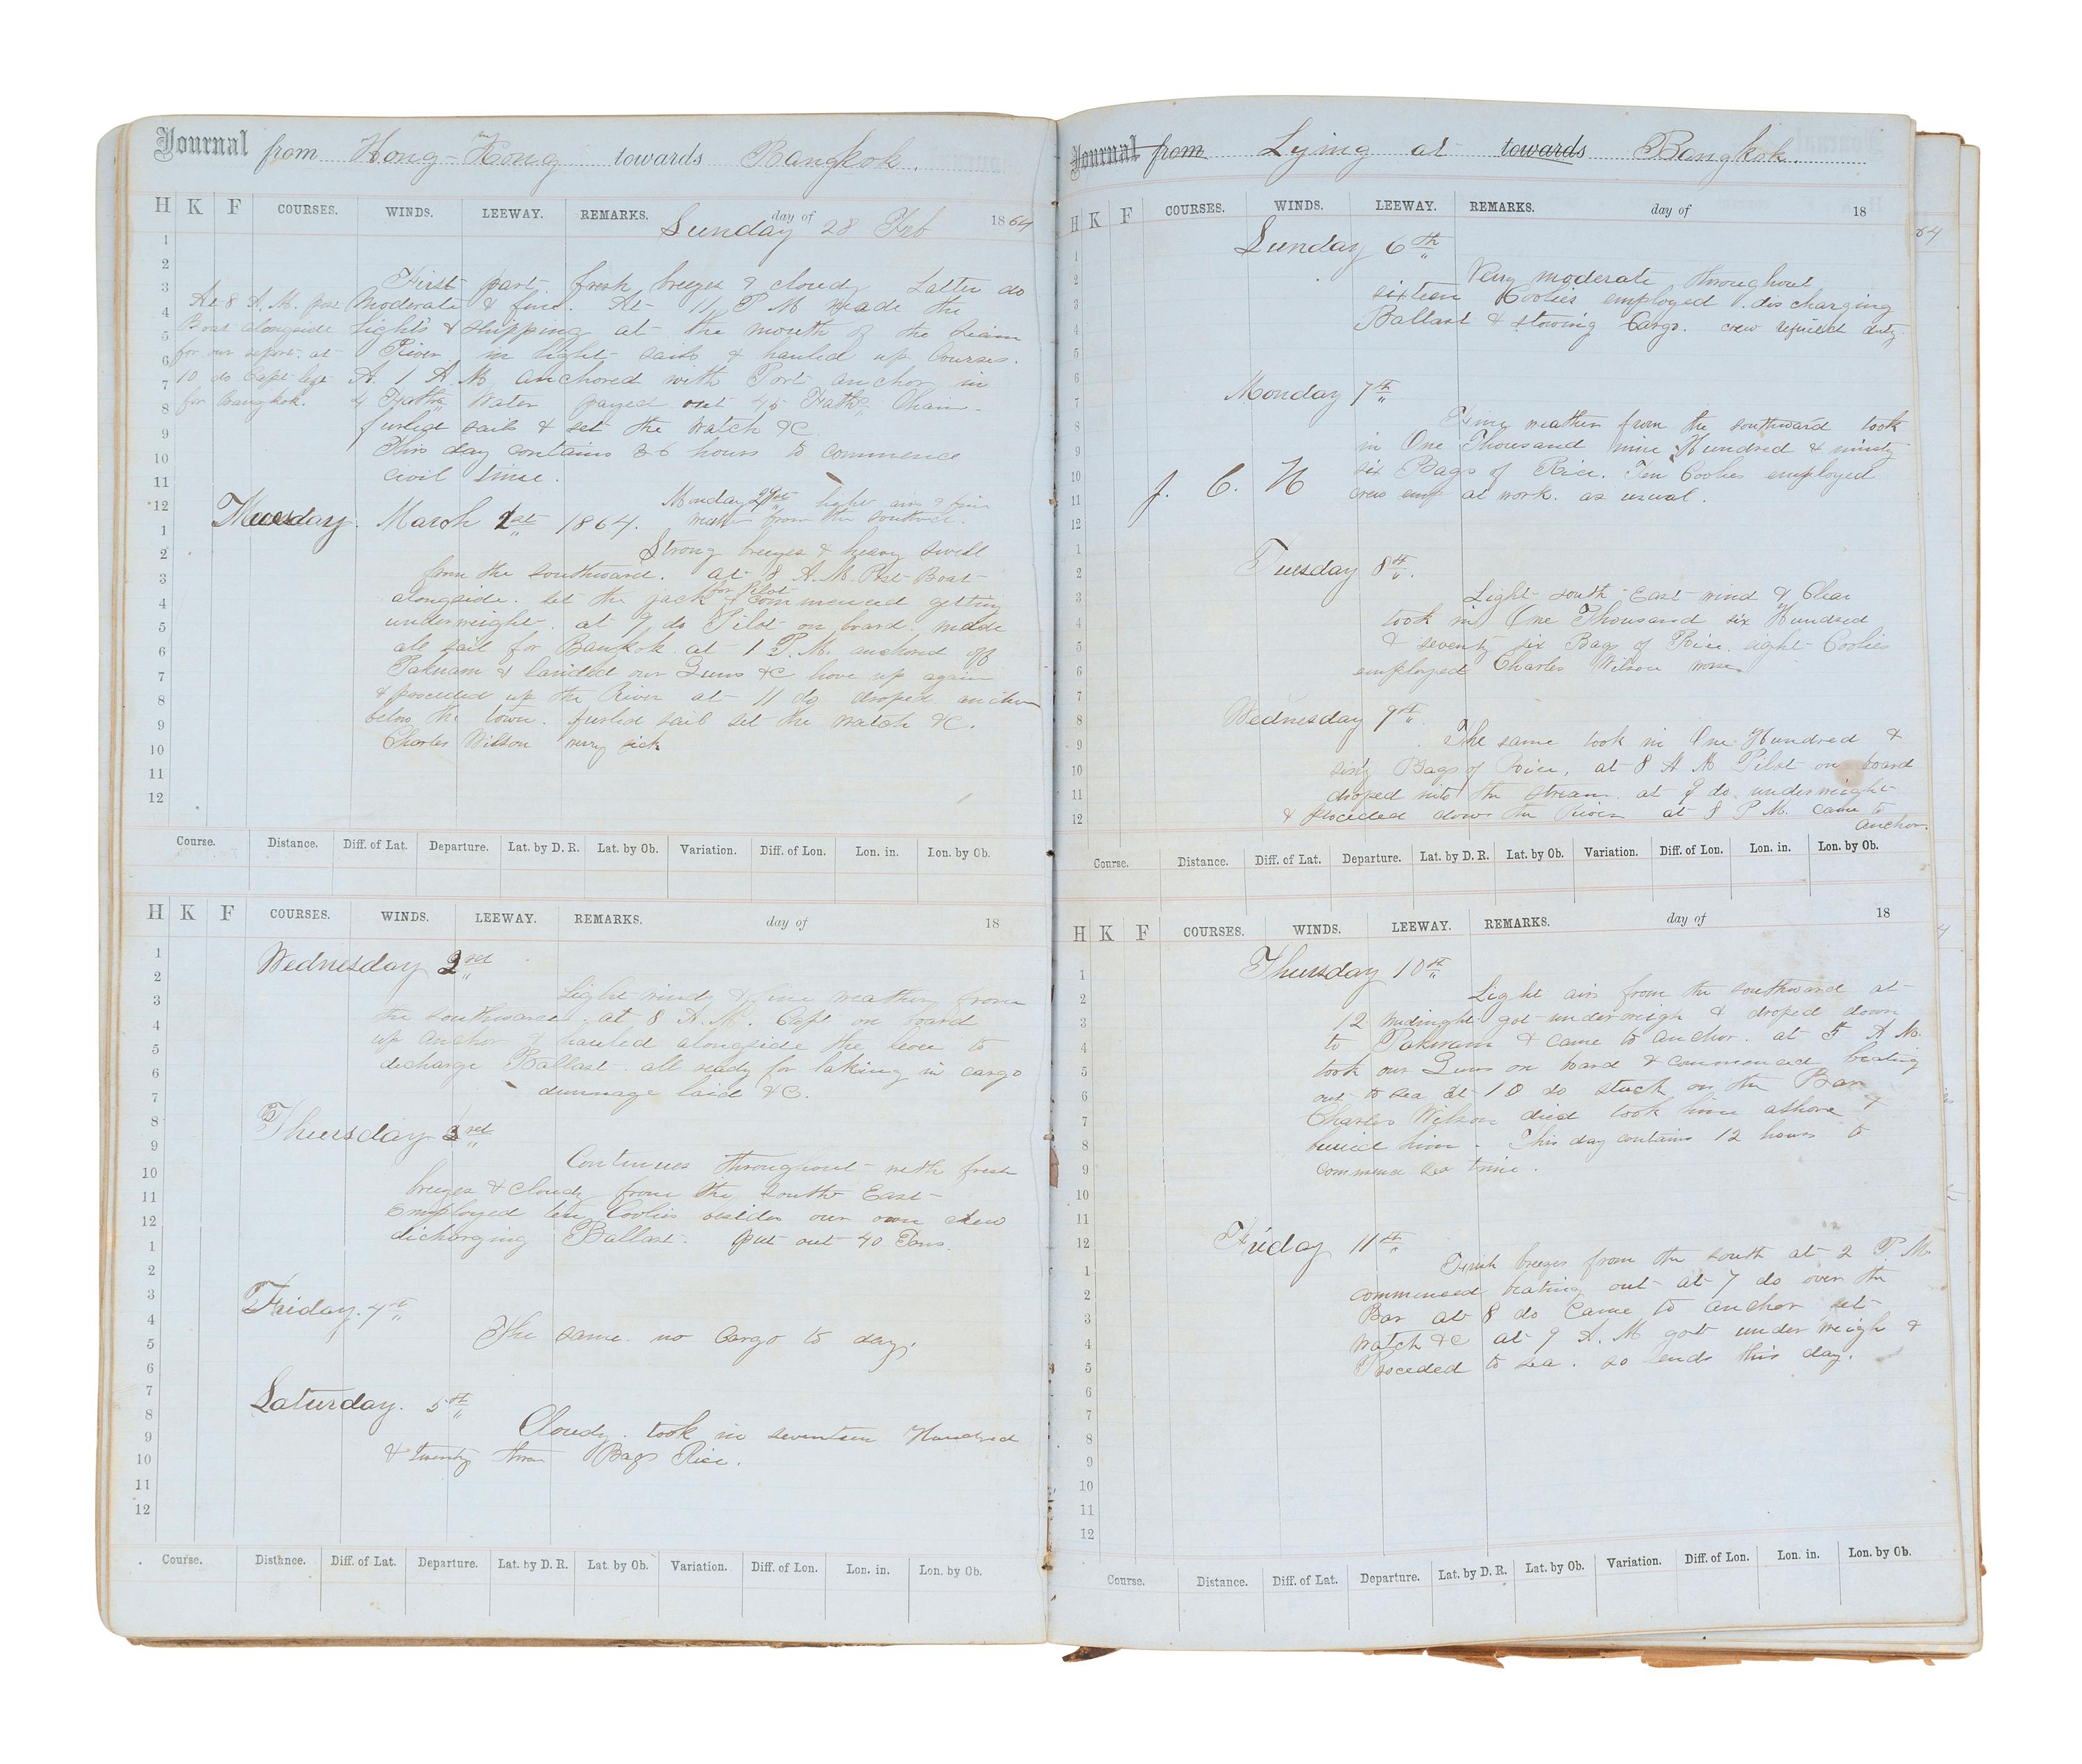 Journal from Hong-Kong towards Bangkok.
H K F COURSES. WINDS. LEEWAY. REMARKS. day of 1864
Sunday 28 Feb
1
2
3
4
5
6
7
8
9
10
11
12
First part fresh breezes & cloudy Latter do
moderate & fine. At 11 P M made the
Lights & shipping at the mouth of the Siam
River in light sails & hauled up Courses.
At 1 A M anchored with Port anchor in
4 Faths Water payed out 45 Faths Chain
furled sails & set the watch &C
This day contains 36 hours to commence
civil time.
At 8 A. M. post
Boat alongside
for our report. at
10 do Capt left
for Bangkok.
Monday 29th light airs & fine
weather from the southwd.
Tuesday. March 1st 1864.
1
2
3
4
5
6
7
8
9
10
11
12
Strong breezes & heavy swell
from the southward. at 8 A. M. Post Boat
alongside. set the jack for Pilot & commenced getting
underweight. at 9 do Pilot on board. made
all sail for Bankok. at 1 P. M. anchored off
Paknam & landed our Guns &C hove up again
& proceeded up the River at 11 do droped anchor
below the town. furled sail set the watch &C.
Charles Wilson very sick
Course. Distance. Diff. of Lat. Departure. Lat. by D. R. Lat. by Ob. Variation. Diff. of Lon. Lon. in. Lon. by Ob.
H K F COURSES. WINDS. LEEWAY. REMARKS. day of 18
1
2
3
4
5
6
7
8
9
10
11
12
1
2
3
4
5
6
7
8
9
10
11
12
Wednesday 2nd
Light winds & fine weather from
the southward. at 8 A. M. Capt on board
up anchor & hauled alongside the to
discharge Ballast. all ready for taking in cargo
dunnage laid &C.
Thursday 3rd
Continues throughout with fresh
breezes & cloudy from the South East
Employed ten Coolies besides our own crew
dicharging Ballast. put out 40 Tons.
Friday. 4th
The same. no Cargo to day.
Saturday. 5th
Cloudy. took in seventeen Hundred
& twenty three Bags Rice.
Course. Distance. Diff. of Lat. Departure. Lat. by D. R. Lat. by Ob. Variation. Diff. of Lon. Lon. in. Lon. by Ob.
Journal from Lying at towards Bangkok.
H K F COURSES. WINDS. LEEWAY. REMARKS. day of 18
1
2
3
4
5
6
7
8
9
10
11
12
1
2
3
4
5
6
7
8
9
10
11
12
Sunday 6th
Very moderate throughout
sixteen Coolies employed discharging
Ballast & stowing Cargo. crew refused duty.
Monday 7th
Fine weather from the southward took
in One Thousand nine Hundred & ninety
six Bags of Rice. Ten Coolies employed
crew emp at work. as usual.
J. C. H
Tuesday 8th.
Light South East wind & Clear
took in One Thousand six Hundred
& seventy six Bags of Rice. eight Coolies
employed Charles Wilson worse
Wednesday 9th
The same took in One Hundred &
sixty Bags of Rice, at 8 A M Pilot on board
droped into the stream. at 9 do underweight
& proceeded down the River at 8 P M. came to
anchor.
Course. Distance. Diff. of Lat. Departure. Lat. by D. R. Lat. by Ob. Variation. Diff. of Lon. Lon. in. Lon. by Ob.
H K F COURSES. WINDS. LEEWAY. REMARKS. day of 18
1
2
3
4
5
6
7
8
9
10
11
12
1
2
3
4
5
6
7
8
9
10
11
12
Thursday 10th
Light airs from the southward at
12 midnight got underweigh & droped down
to Paknam & came to anchor. at 5 A M.
took our Guns on board & commenced beating
out to sea at 10 do stuck on the Bar
Charles Wilson died took him ashore &
buried him. This day contains 12 hours to
commence sea time.
Friday 11th
Fresh breezes from the south at 2 P. M.
commenced beating out at 7 do over the
Bar at 8 do Came to anchor set
watch &C at 9 A. M got under weigh &
Proceded to sea. so ends this day.
Course. Distance. Diff. of Lat. Departure. Lat. by D. R. Lat. by Ob. Variation. Diff. of Lon. Lon. in. Lon. by Ob.